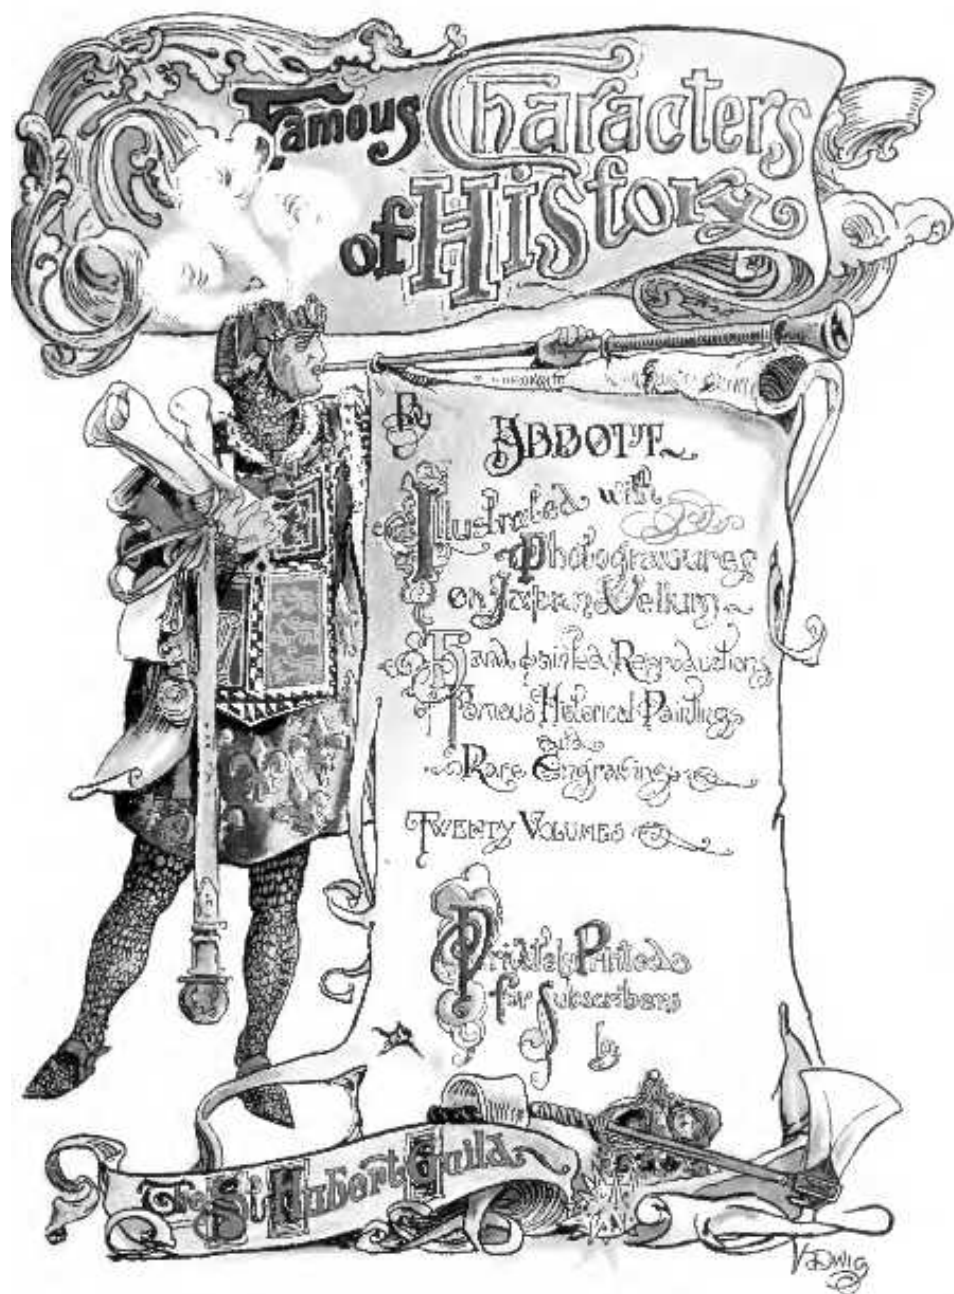 Famous Characters
of History
By
ABBOTT
Illustrated with
Photogravures
on Japan Vellum
Hand painted Reproductions
of Famous Historical Paintings
and
Rare Engravings
TWENTY VOLUMES
Privately Printed
for Subscribers
by
The St. Hubert Guild